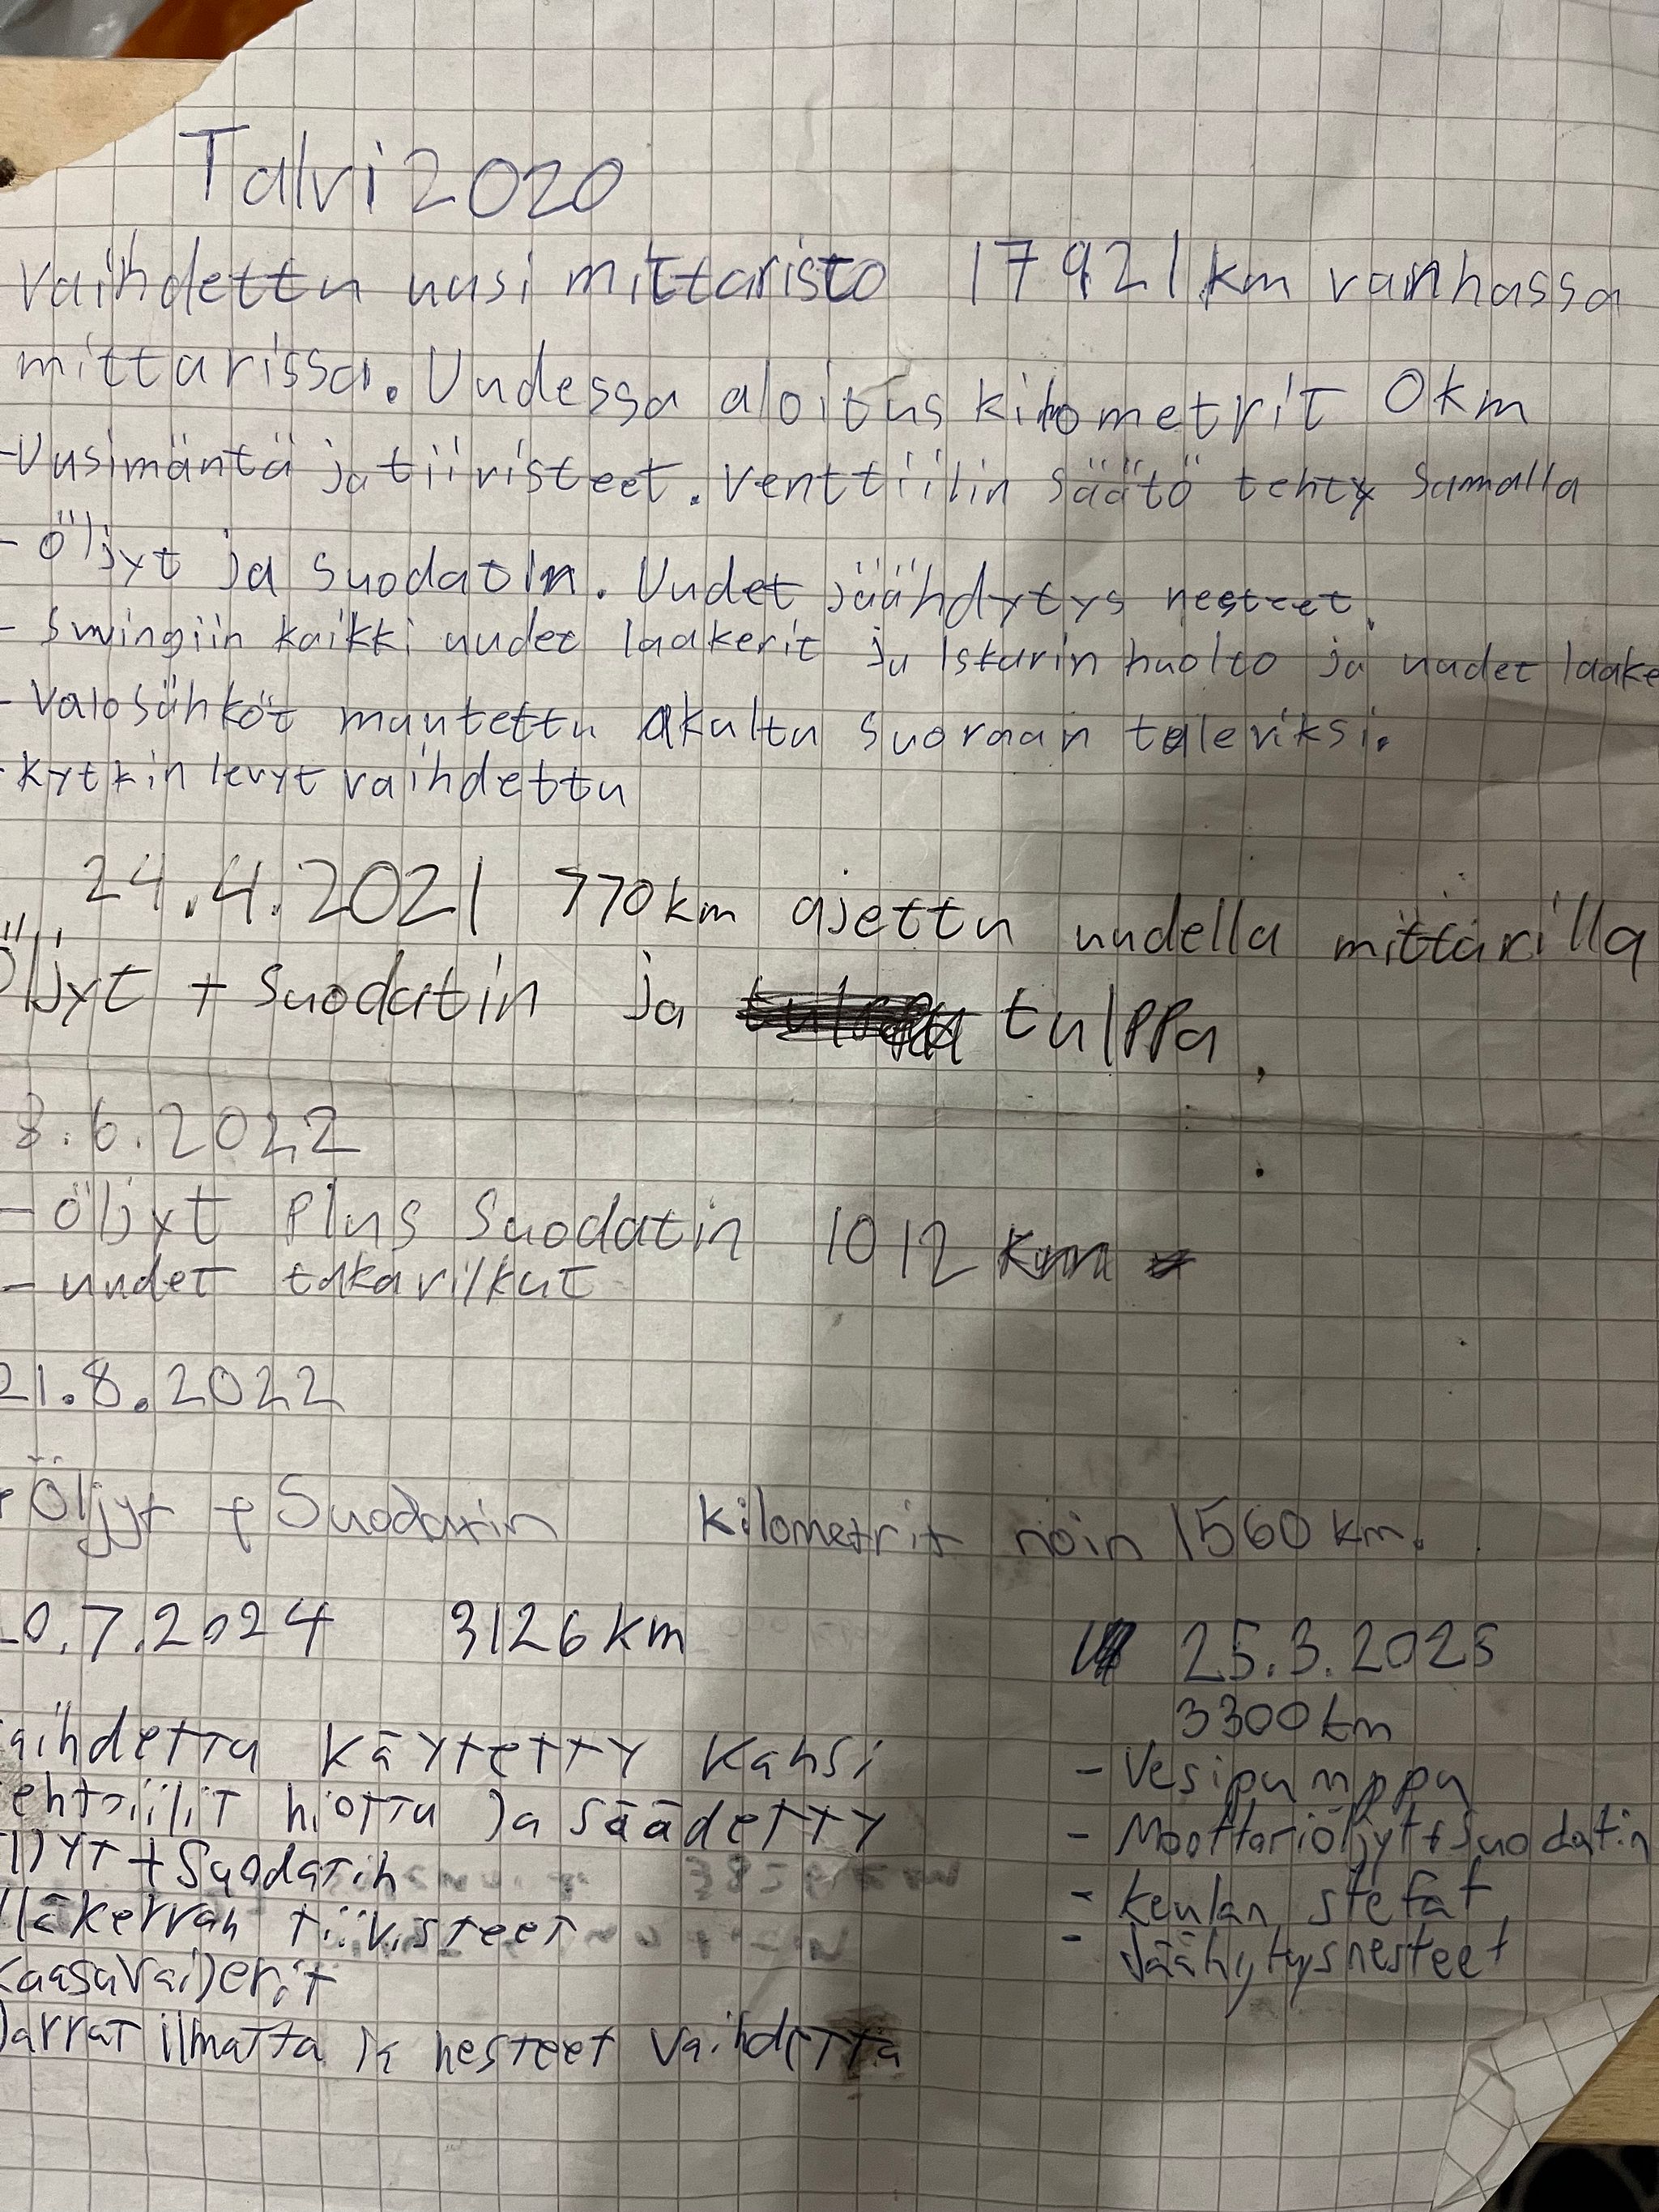 Talvi 2020
Vaihdettu uusi mittaristo 17921km vanhassa
mittarissa. Uudessa aloitus kilometrit 0km
-Uusimäntä ja tiiristeet. Venttiilin säätö tehty samalla
- öljyt ja suodatin. Uudet jäähdytys nesteet.
- Swingiin kaikki uudet laakerit ja Iskarin huolto ja uudet laake
- Valosähköt muutettu akulta suoraan toleviksi.
- kytkin levyt vaihdettu
24.4.2021 770km ajettu uudella mittarilla
Öljyt + Suodatin ja tulppa
8.6.2022
- öljyt Plus Suodatin 1012 km
- uudet takarilkut
21.8.2022
Öljyt + Suodatin kilometrit noin 1560 km.
0.7.2024 3126 km
aihdettu käytetty kansi
ehtiilit hiottu ja säädetty
ljyt + Suodatin
läkerran tiivisteet
kaasuvaijerit
jarrat ilmattu ja nesteet vaihdettu
25.3.2025
3300km
- Vesipumppu
- Moottoriöljyt + suodatin
- keulan stefat
- Jäähytysnesteet